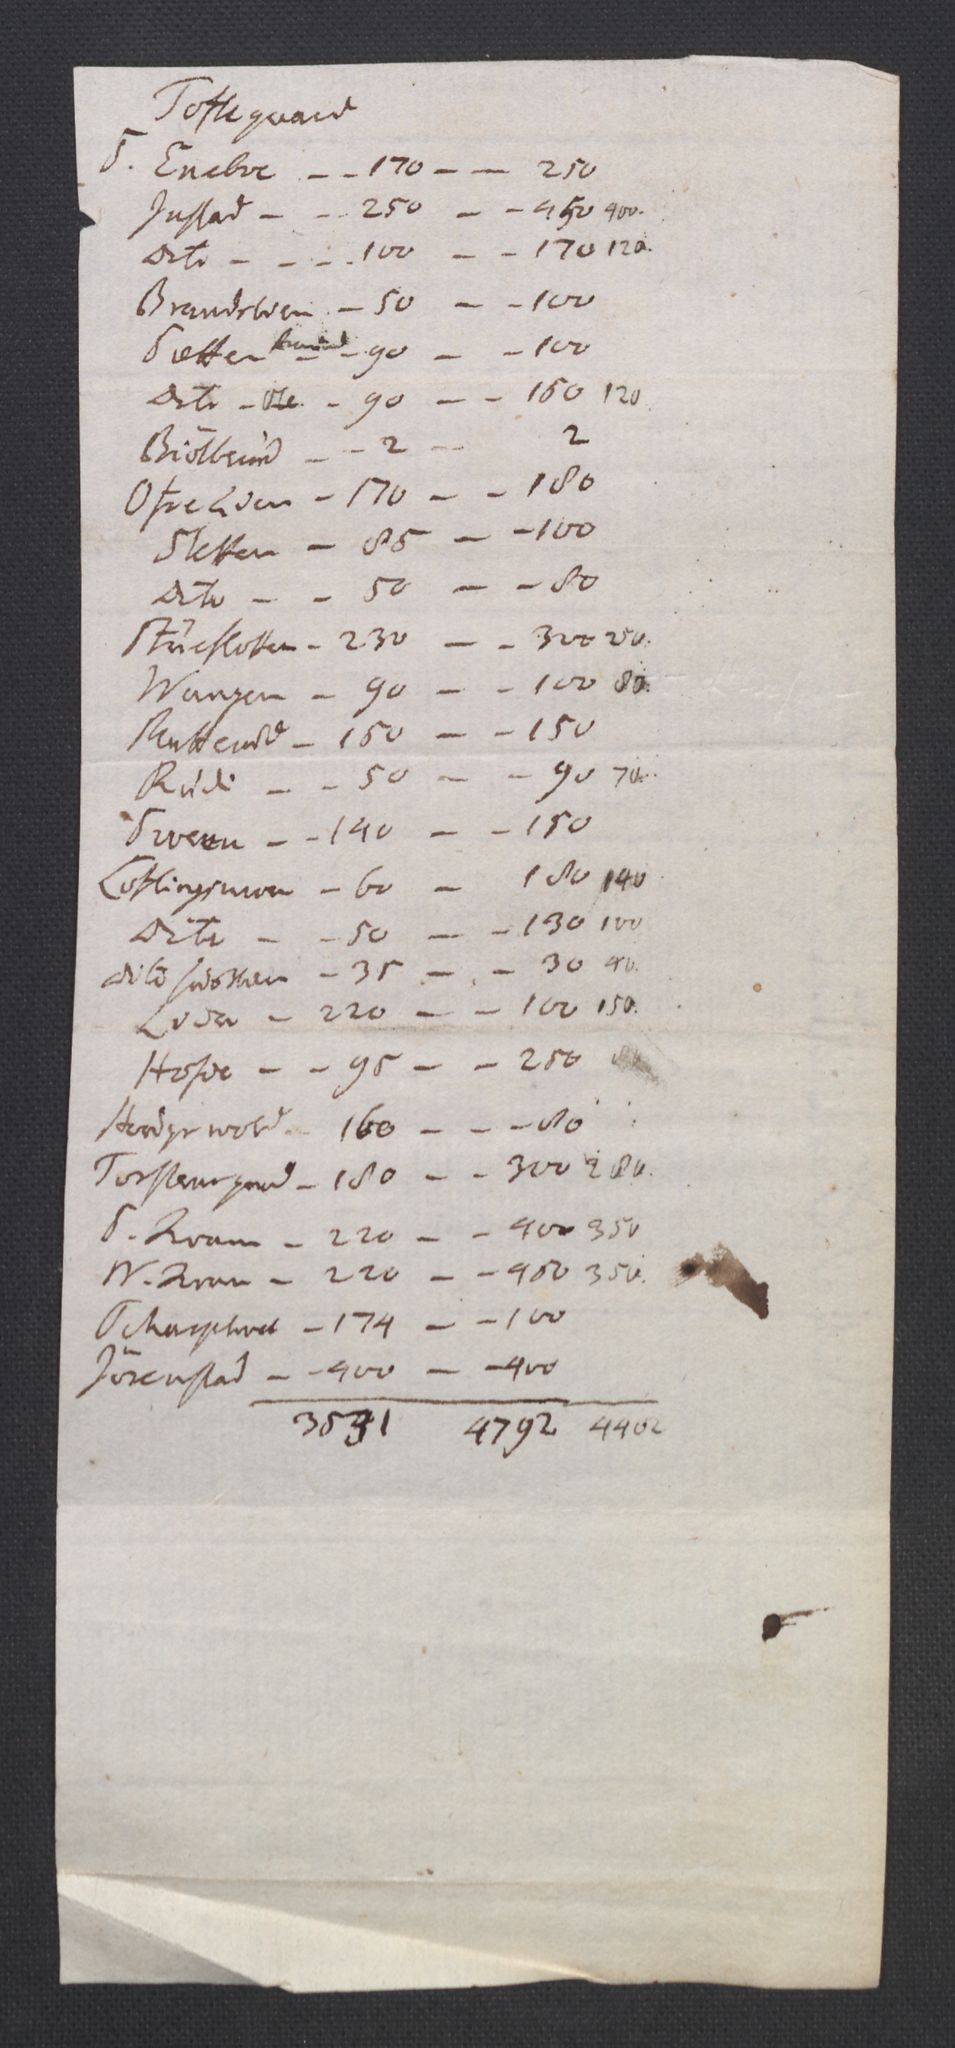 Tofteguard
S. Eneboe - - 170 - - 250
Justad - - 250 - - 450 400.
Dito - - - 100 - - 170 120.
Brandstven - 50 - - 100
Sletten - - 90 - - 100
Dito - Ole - 90 - - 150 120
Biölleind - - 2 - 2
Ofre Lien - 170 - - 180
Sletten - 85 - - 100
Dito - - 50 - - 80
Stueflotten - 230 - - 300 250.
Wangen - 90 - - 100 80.
- 150 - - 150
Rudi - - 50 - - 90 70.
Sween - - 140 - - 150
Lossingsmoen - 60 - 180 140
Dito - - 50 - - 130 100
dito - 35 - - 30 40.
Loder - 220 - - 100 150.
Hofve - - 95 - - 250
- 160 - - - 80
Torstensgaard - 180 - - 300 280.
S. Kvam - 220 - - 400 350
N. Kvam - 220 - - 450 350.
- 174 - - 100
Jörenstad - - 400 - - 400
3531 4792 4402